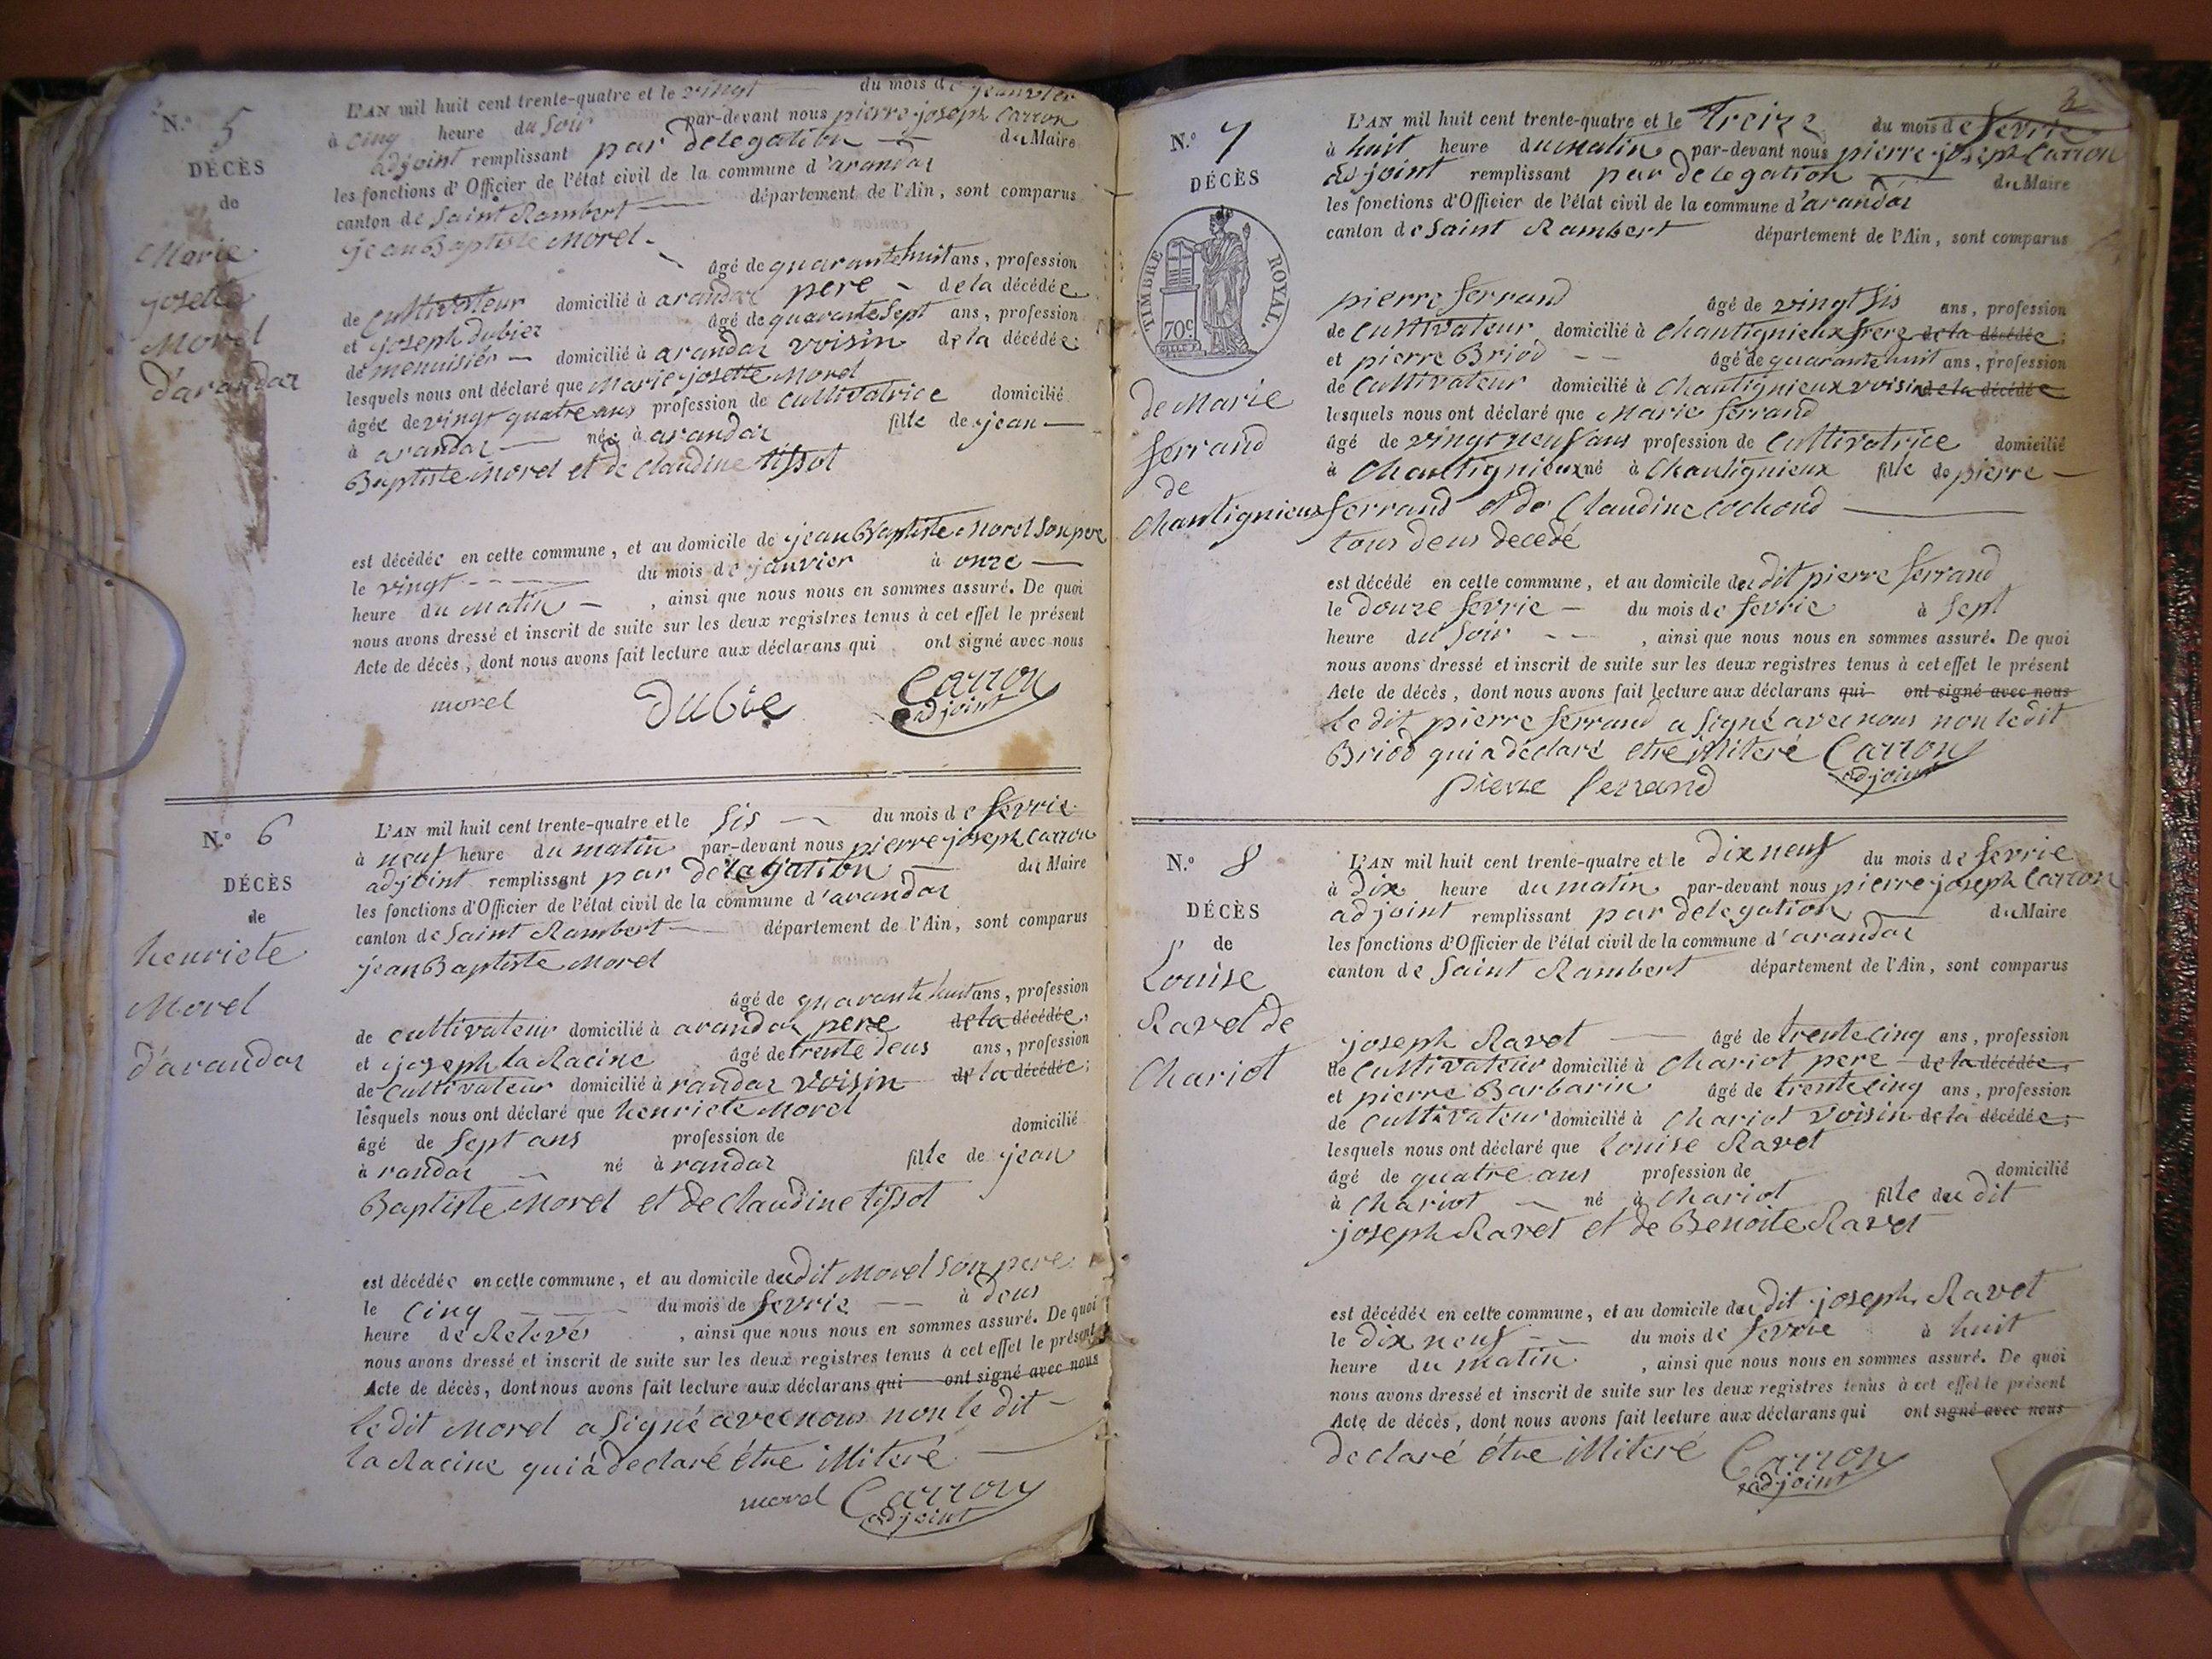 N.º 5
DÉCÈS
de
Marie
josette
Morel
d'arandaz
L'AN mil huit cent trente-quatre et le vingt du mois de jeanvier
à cinq heure du soir par-devant nous pierre joseph Carron
adjoint remplissant par délégation du Maire
les fonctions d'Officier de l'état civil de la commune d'arandaz
canton de Saint Rambert département de l'Ain, sont comparus
jean Baptiste Morel
âgé de quarante huit ans, profession
de Cultivateur domicilié à arandaz pere de la décédée
et joseph dubiez âgé de quarante sept ans, profession
de menuisier domicilié à arandaz voisin de la décédée;
lesquels nous ont déclaré que Marie josette Morel
âgée de vingt quatre ans profession de Cultivatrice domicilié
à arandaz née à arandaz fille de jean
Baptiste Morel et de Claudine tissot
est décédée en cette commune, et au domicile de jean Baptiste Morel son pere
le vingt du mois de janvier à onze
heure du matin, ainsi que nous nous en sommes assuré. De quoi
nous avons dressé et inscrit de suite sur les deux registres tenus à cet effet le présent
Acte de décès, dont nous avons fait lecture aux déclarans qui ont signé avec nous
morel Dubie Carron
adjoint
N.º 6
DÉCÈS
de
henriete
Morel
d'arandaz
L'AN mil huit cent trente-quatre et le sis du mois de fevrie
à neuf heure du matin par-devant nous pierre joseph Carron
adjoint remplissant par délégation du Maire
les fonctions d'Officier de l'état civil de la commune d'arandaz
canton de Saint Rambert département de l'Ain, sont comparus
jean Baptiste Morel
âgé de quarante huit ans, profession
de cultivateur domicilié à arandaz pere de la décédée,
et joseph la Racine âgé de trente deus ans, profession
de Cultivateur domicilié à randaz voisin de la décédée;
lesquels nous ont déclaré que henriete Morel
âgé de sept ans profession de domicilié
à randaz né à randaz fille de jean
Baptiste Morel et de Claudine tissot
est décédée en cette commune, et au domicile du dit Morel son pere
le cinq du mois de fevrie à deus
heure de Relevés, ainsi que nous nous en sommes assuré. De quoi
nous avons dressé et inscrit de suite sur les deux registres tenus à cet effet le présent
Acte de décès, dont nous avons fait lecture aux déclarans qui ont signé avec nous
le dit Morel a signé avec nous non le dit
la Racine qui à declaré être illiteré
morel Carron
adjoint
2
N.º 7
DÉCÈS
de
TIMBRE ROYAL.
70c
de Marie
ferrand
de
Chantignieux
L'AN mil huit cent trente-quatre et le treize du mois de fevrie
à huit heure du matin par-devant nous pierre joseph Carron
adjoint remplissant par delegation du Maire
les fonctions d'Officier de l'état civil de la commune d'arandaz
canton de Saint Rambert département de l'Ain, sont comparus
pierre ferrand âgé de vingt sis ans, profession
de Cultivateur domicilié à Chantignieux frere de la décédée;
et pierre Briod âgé de quarante huit ans, profession
de Cultivateur domicilié à Chantignieux voisin de la décédée
lesquels nous ont déclaré que Marie ferrand
âgé de vingt neuf ans profession de Cultivatrice domicilié
à Chantignieux né à Chantignieux fille de pierre
ferrand et de Claudine Cochond
tous deus decedé
est décédé en cette commune, et au domicile du dit pierre ferrand
le douze fevrie du mois de fevrie à sept
heure du soir, ainsi que nous nous en sommes assuré. De quoi
nous avons dressé et inscrit de suite sur les deux registres tenus à cet effet le présent
Acte de décès, dont nous avons fait lecture aux déclarans qui ont signé avec nous
le dit pierre ferrand a signé avec nous non le dit
Briod qui a déclaré etre illiteré Carron
adjoint
pierre ferrand
N.º 8
DÉCÈS
de
Louise
Ravet de
Chariot
L'AN mil huit cent trente-quatre et le dix neuf du mois de fevrie
à dix heure du matin par-devant nous pierre joseph Carron
adjoint remplissant par delegation du Maire
les fonctions d'Officier de l'état civil de la commune d'arandaz
canton de Saint Rambert département de l'Ain, sont comparus
joseph Ravet âgé de trente cinq ans, profession
de Cultivateur domicilié à Chariot pere de la décédée,
et pierre Barbarin âgé de trente cinq ans, profession
de Cultivateur domicilié à Chariot voisin de la décédée;
lesquels nous ont déclaré que Louise Ravet
âgé de quatre ans profession de domicilié
à Chariot né à Chariot fille du dit
joseph Ravet et de Benoite Ravet
est décédée en cette commune, et au domicile du dit joseph Ravet
le dix neuf du mois de fevrie à huit
heure du matin, ainsi que nous nous en sommes assuré. De quoi
nous avons dressé et inscrit de suite sur les deux registres tenus à cet effet le présent
Acte de décès, dont nous avons fait lecture aux déclarans qui ont signé avec nous
declaré être illiteré Carron
adjoint